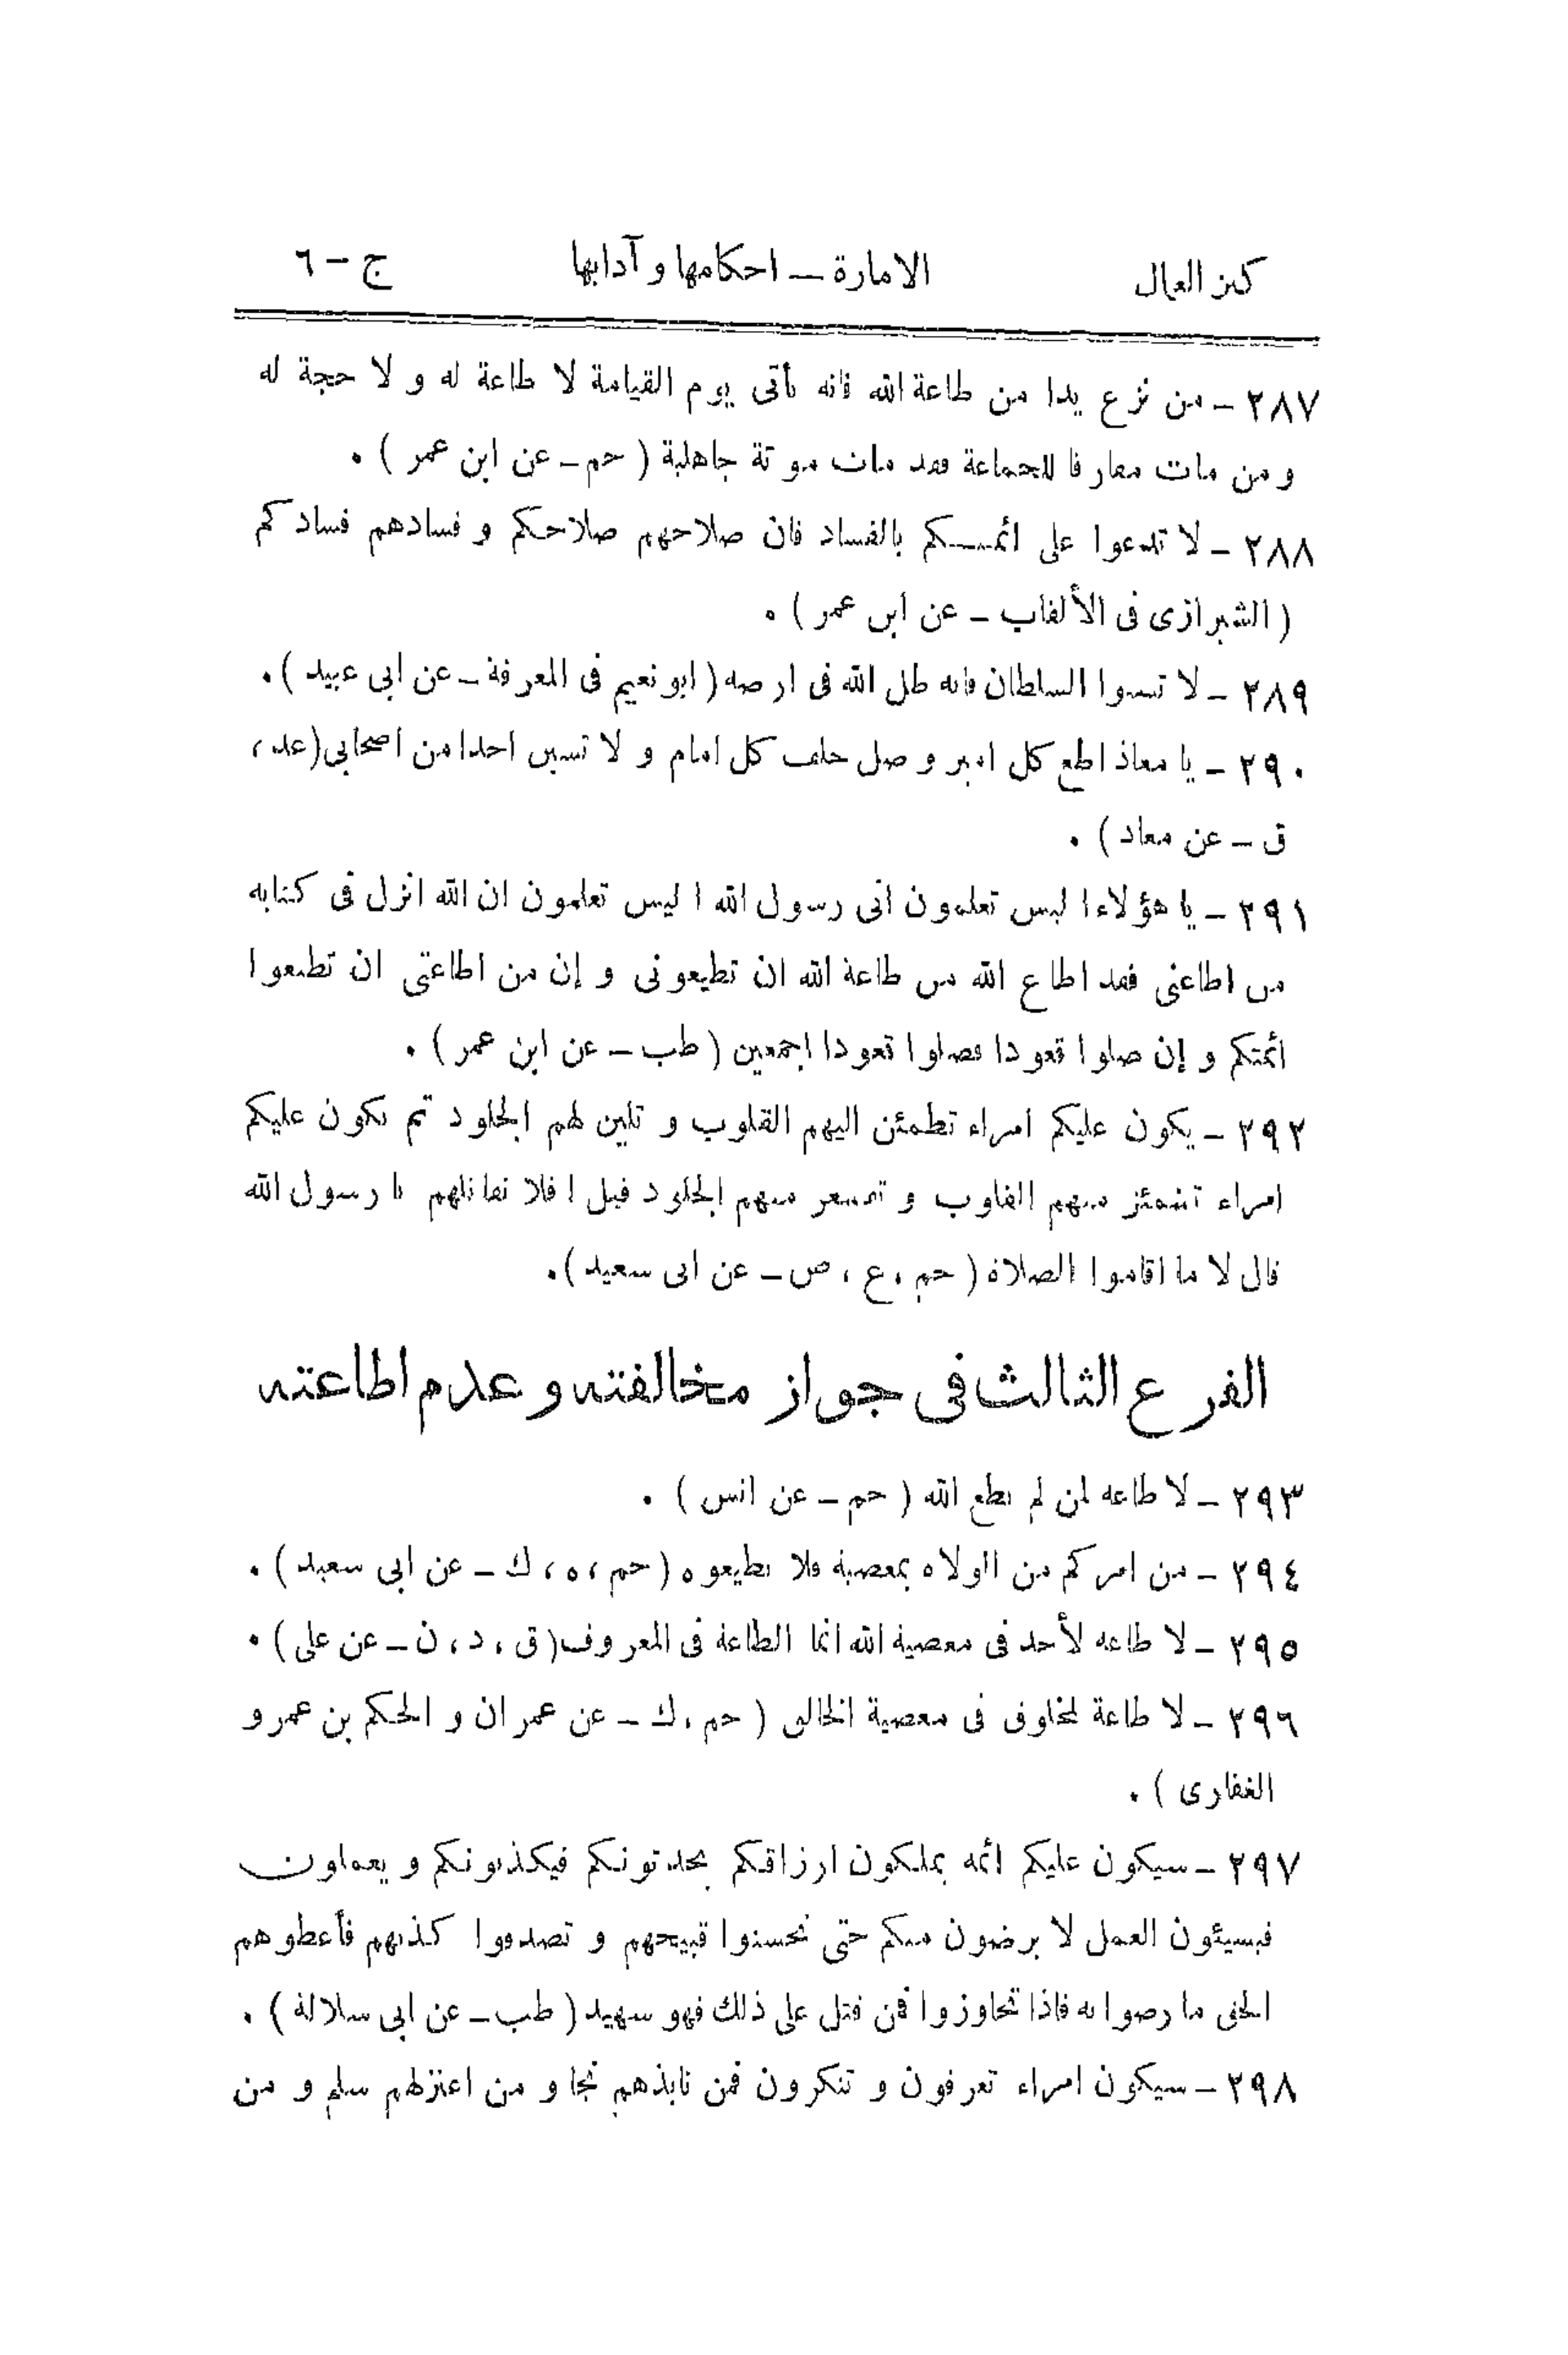 كنز العمال الامارة – احكامها و آدابها ج – ٦
٢٨٧ – من نزع يدا من طاعة الله فانه يأتى يوم القيامة لا طاعة له و لا حجة له
و من مات مفارقا للجماعة فقد مات موتة جاهلية ( حم – عن ابن عمر ) .
٢٨٨ – لا تدعوا على ائمتـكم بالفساد فان صلاحهم صلاحكم و فسادهم فسادكم
( الشيرازى فى الألقاب – عن ابن عمر ) .
٢٨٩ – لا تسبوا السلطان فانه ظل الله فى ارضه ( ابو نعيم فى المعرفة – عن ابى عبيد ) .
٢٩٠ – يا معاذ اطع كل امير و صل خلف كل امام و لا تسبن احدا من اصحابى ( عد ،
ق – عن معاذ ) .
٢٩١ – يا هؤلاء ا ليس تعلمون انى رسول الله ا ليس تعلمون ان الله انزل فى كتابه
من اطاعنى فقد اطاع الله من طاعة الله ان تطيعونى و إن من اطاعتى ان تطيعوا
ائمتكم و إن صلوا قعودا فصلوا قعودا اجمعين ( طب – عن ابن عمر ) .
٢٩٢ – يكون عليكم امراء تطمئن اليهم القلوب و تلين لهم الجلود ثم يكون عليكم
امراء تشمئز منهم القلوب و تقشعر منهم الجلود قيل ا فلا نقاتلهم يا رسول الله
قال لا ما اقاموا الصلاة ( حم ، ع ، ص – عن ابى سعيد ) .
الفرع الثالث فى جواز مخالفته و عدم اطاعته
٢٩٣ – لا طاعة لمن لم يطع الله ( حم – عن انس ) .
٢٩٤ – من امركم من الولاة بمعصية فلا تطيعوه ( حم ، ه ، ك – عن ابى سعيد ) .
٢٩٥ – لا طاعة لأحد فى معصية الله انما الطاعة فى المعروف ( ق ، د ، ن – عن على ) .
٢٩٦ – لا طاعة لمخلوق فى معصية الخالق ( حم ، ك – عن عمران و الحكم بن عمرو
الغفارى ) .
٢٩٧ – سيكون عليكم ائمة يملكون ارزاقكم يحدثونكم فيكذبونكم و يعملون
فيسيئون العمل لا يرضون منكم حتى تحسنوا قبيحهم و تصدقوا كذبهم فأعطوهم
الحق ما رضوا به فاذا تجاوزوا فمن قتل على ذلك فهو شهيد ( طب – عن ابى سلالة ) .
٢٩٨ – سيكون امراء تعرفون و تنكرون فمن نابذهم نجا و من اعتزلهم سلم و من